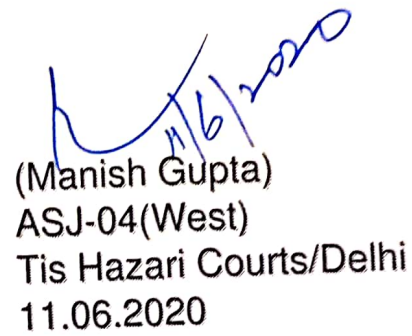 11/6/2020
(Manish Gupta)
ASJ-04(West)
Tis Hazari Courts/Delhi
11.06.2020